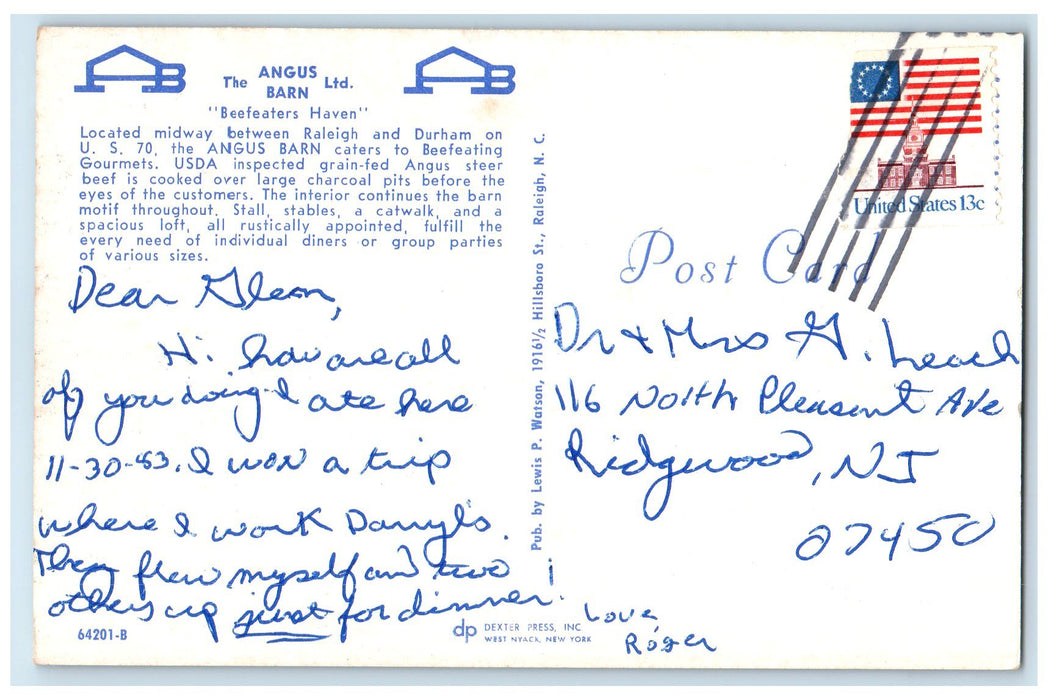 AB
The ANGUS BARN Ltd.
AB
"Beefeaters Haven"
Located midway between Raleigh and Durham on
U. S. 70, the ANGUS BARN caters to Beefeating
Gourmets. USDA inspected grain-fed Angus steer
beef is cooked over large charcoal pits before the
eyes of the customers. The interior continues the barn
motif throughout. Stall, stables, a catwalk, and a
spacious loft, all rustically appointed, fulfill the
every need of individual diners or group parties
of various sizes.
Dear Glenn,
Hi. how are all
of you doing I ate here
11-30-83. I won a trip
where I work Darryl's.
They flew myself and two
others up just for dinner.
Love,
Roger
64201-B
dp DEXTER PRESS, INC.
WEST NYACK, NEW YORK
Pub. by Lewis P. Watson, 1916½ Hillsboro St., Raleigh, N. C.
United States 13c
Post Card
Dr & Mrs G. Leach
116 North Pleasant Ave
Ridgewood, NJ
07450